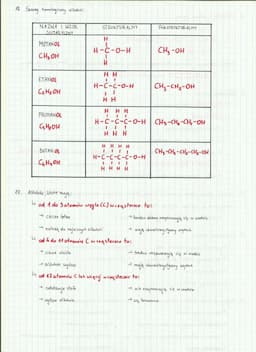 Szereg homologiczny alkoholi:
NAZWA I WZÓR SUMARYCZNY
STRUKTURALNY
PÓŁSTRUKTURALNY
METANOL
CH₃OH
H
H-C-O-H
H
CH₃-OH
ETANOL
C₂H₅OH
H H
H-C-C-O-H
H H
CH₃-CH₂-OH
PROPANOL
C₃H₇OH
H H H
H-C-C-C-O-H
H H H
CH₃-CH₂-CH₂-OH
BUTANOL
C₄H₉OH
H H H H
H-C-C-C-C-O-H
H H H H
CH₃-CH₂-CH₂-CH₂-OH
Alkohole, które mają:
od 1 do 3 atomów węgla (C) w cząsteczce to:
→ ciecze
→ bardzo dobrze rozpuszczają się w wodzie
→ należą do
alkoholi
→ mają charakterystyczny zapach
od 4 do 11 atomów C w cząsteczce to:
→ ciecze oleiste
→ rozpuszczają się w wodzie
→ alkohole
→ mają charakterystyczny zapach
od 12 atomów C lub więcej w cząsteczce to:
→ substancje stałe
→ nie rozpuszczają się w wodzie
→ wyższe alkohole
→ są bezwonne